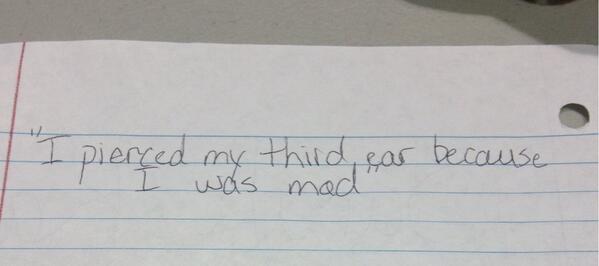 "I pierced my third ear because
I was mad"